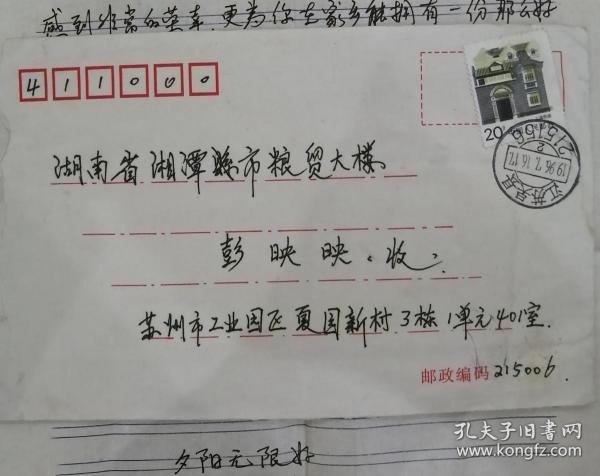 感到非常的荣幸.更为你在家乡能拥有一份那么好
411000
20
湖南省湘潭縣市粮贸大楼
彭映映.收.
苏州市工业园区夏园新村3栋1单元401室.
邮政编码215006.
夕阳无限好
江苏吴县
1996.7.16.17
215156
2
孔夫子旧书网